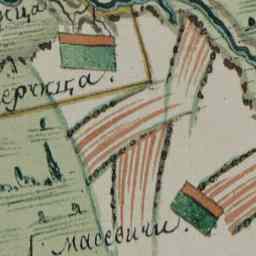 ица
ерчица.
Массевичи.